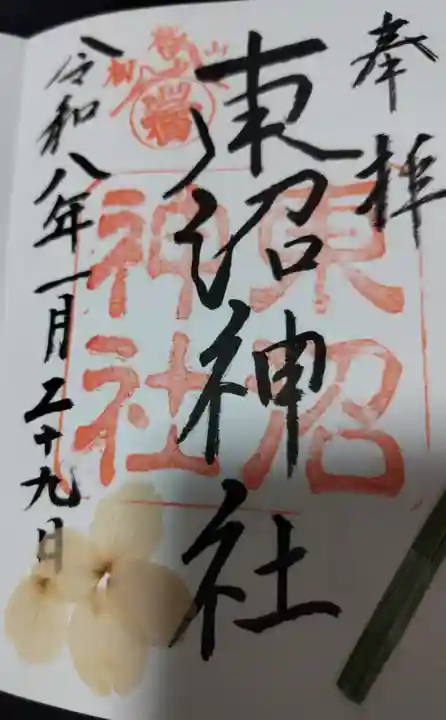 奉拝
東沼神社
令和八年一月二十九日
東沼
神社